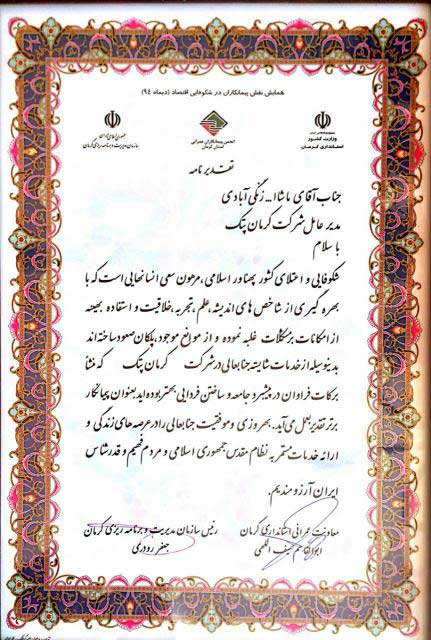 همایش نقش پیمانکاران در شکوفایی اقتصاد (دیماه ۹٤)
وزارت کشور
استانداری کرمان
انجمن پیمانکاران عمرانی
استان کرمان
جمهوری اسلامی ایران
سازمان مدیریت و برنامه ریزی کرمان
تقدیرنامه
جناب آقای ماشاا... زنگی آبادی
مدیر عامل شرکت کرمان پتک
با سلام
شکوفایی و اعتلای کشور پهناور اسلامی، مرهون سعی انسانهایی است که با
بهره گیری از شاخص های اندیشه، علم، تجربه، خلاقیت و استفاده بهینه
از امکانات بر مشکلات غلبه نموده و از موانع موجود، پلکان صعود ساخته اند
بدینوسیله از خدمات شایسته جنابعالی در شرکت کرمان پتک که منشأ
برکات فراوان در پیشبرد جامعه و ساختن فردایی بهتر بوده اید بعنوان پیمانکار
برتر تقدیر بعمل می آید. بهروزی و موفقیت جنابعالی را در عرصه های زندگی و
ارائه خدمات مستمر به نظام مقدس جمهوری اسلامی و مردم فهیم و قدرشناس
ایران آرزومندیم.
معاونت عمرانی استانداری کرمان
ابوالقاسم سیف الهی
رئیس سازمان مدیریت و برنامه ریزی کرمان
جعفر رودری